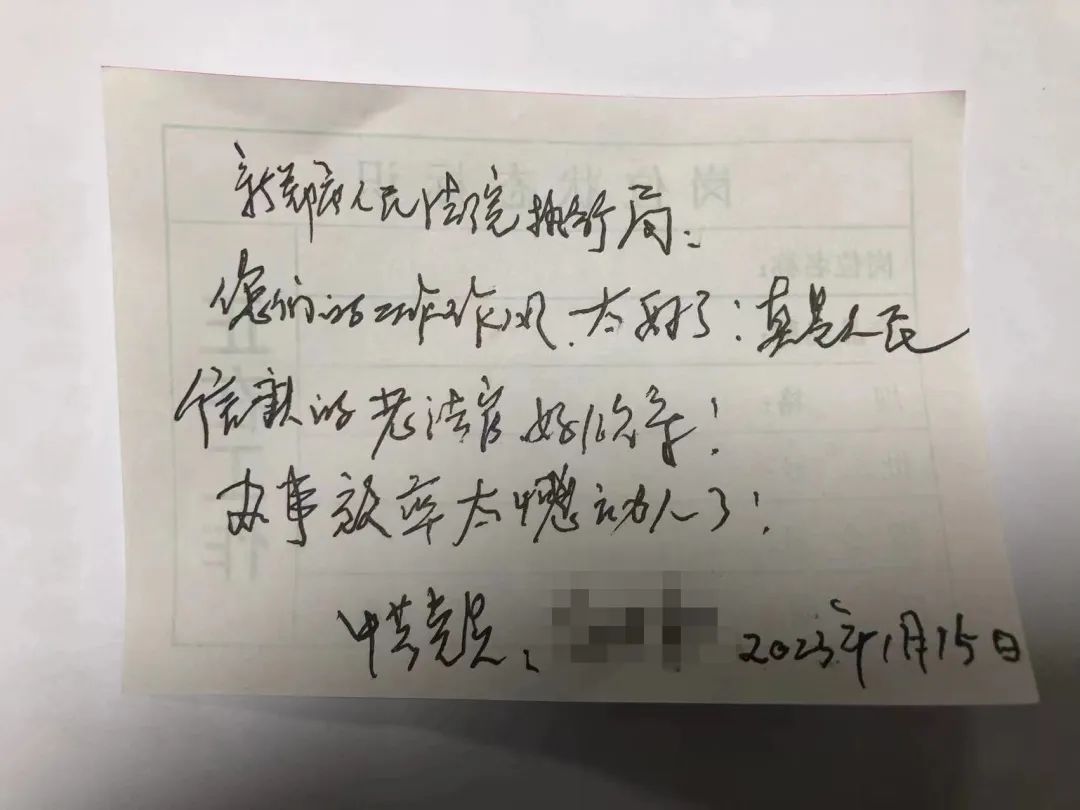 新郑市人民法院执行局:
您们的工作作风.太好了:真是人民
信赖的老法官.好!
办事效率太憾动人了!
中共党员、 2023年1月15日